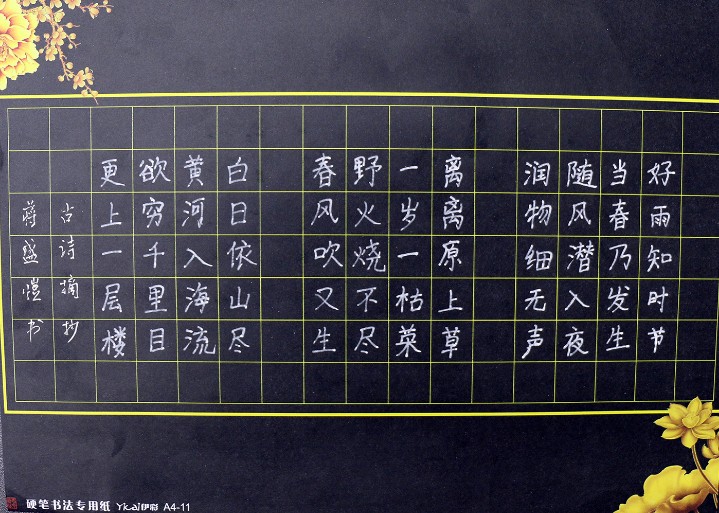 好雨知时节
当春乃发生
随风潜入夜
润物细无声
离离原上草
一岁一枯菜
野火烧不尽
春风吹又生
白日依山尽
黄河入海流
欲穷千里目
更上一层楼
古诗摘抄
蒋盛恺书
硬笔书法专用纸 Yicai伊彩 A4-11